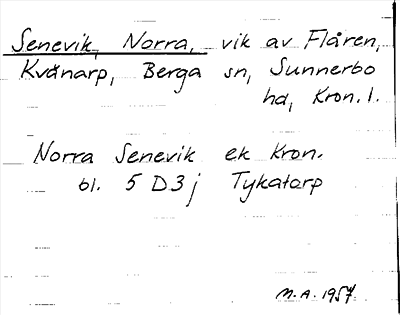 Senevik, Norra, vik av Flåren,
Kvänarp, Berga sn, Sunnerbo
hd, Kron. l.
Norra Senevik ek Kron.
bl. 5 D3j Tykatorp
M.A. 1957